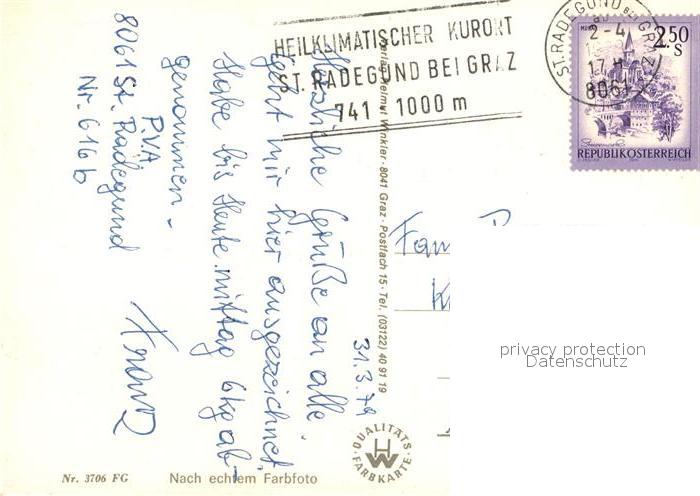 HEILKLIMATISCHER KURORT
ST. RADEGUND BEI GRAZ
741 - 1000 m
ST. RADEGUND BEI GRAZ
2-4
17 H
8061
2.50
S
REPUBLIK ÖSTERREICH
31.3.79
Herzliche Grüße an alle
geht mir hier ausgezeichnet.
Habe bis Heute mittag 6kg ab-
genommen -
PVA
8061 St. Radegund
Nr. 616 b
Verlag Helmut Winkler · 8041 Graz · Postfach 15 · Tel. (03122) 40 91 19
Fam
privacy protection
Datenschutz
QUALITÄTS-
FARBKARTE
HW
Nr. 3706 FG
Nach echtem Farbfoto